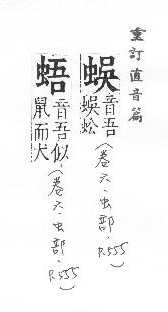 重訂直音篇
蜈音吾蜈蚣(卷六.虫部.P.555)
蜈音吾似鼠而犬(卷六.虫部.P.555)